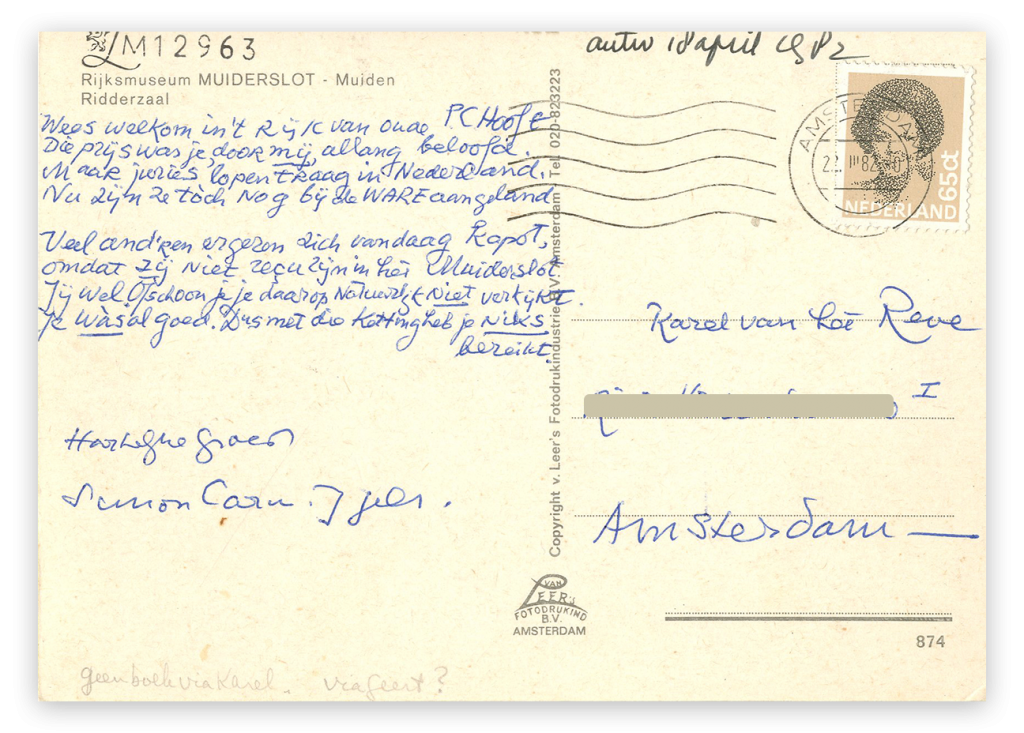 M12963
Rijksmuseum MUIDERSLOT - Muiden
Ridderzaal
antw 18 april 1982
Wees welkom in't Rijk van oude PC Hooft
Die prijs was je door mij, allang beloofd.
Maar juries lopen traag in Nederland.
Nu zijn ze tòch nog bij de WARE aangeland
Veel and'ren ergeren zich vandaag kapot,
omdat zij niet in het Muiderslot.
Jij wel. Ofschoon je je daarop natuurlijk niet verkijkt.
Je was al goed. Dus met die ketting heb je niks
bereikt.
Hartelijke groet
Simon Carm
geen boek via Karel. via geert?
Copyright v. Leer's Fotodrukindustrie B.V. Amsterdam Tel 020-823223
AMSTERDAM
22 III 82
NEDERLAND 65ct
Karel van het Reve
I
Amsterdam
VAN
LEER's
FOTODRUKIND
B.V.
AMSTERDAM
874